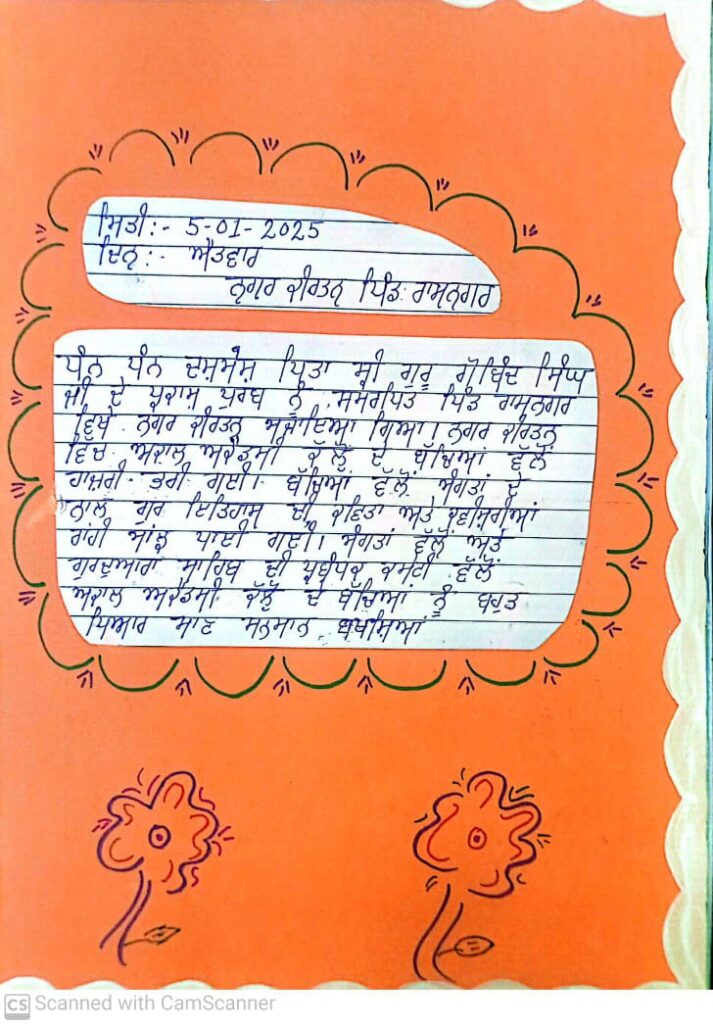 ਮਿਤੀ:- 5-01-2025
ਦਿਨ:- ਐਤਵਾਰ
ਨਗਰ ਕੀਰਤਨ ਪਿੰਡ: ਰਾਮਨਗਰ
ਧੰਨ ਧੰਨ ਦਸ਼ਮੇਸ਼ ਪਿਤਾ ਸ੍ਰੀ ਗੁਰੂ ਗੋਬਿੰਦ ਸਿੰਘ
ਜੀ ਦੇ ਪ੍ਰਕਾਸ਼ ਪੁਰਬ ਨੂੰ ਸਮਰਪਿਤ ਪਿੰਡ ਰਾਮਨਗਰ
ਵਿਖੇ ਨਗਰ ਕੀਰਤਨ ਸਜਾਇਆ ਗਿਆ। ਨਗਰ ਕੀਰਤਨ
ਵਿਚ ਅਕਾਲ ਅਕੈਡਮੀ ਕੱਲੋਂ ਦੇ ਬੱਚਿਆਂ ਵੱਲੋਂ
ਹਾਜ਼ਰੀ ਭਰੀ ਗਈ। ਬੱਚਿਆਂ ਵੱਲੋਂ ਸੰਗਤਾਂ ਦੇ
ਨਾਲ ਗੁਰ ਇਤਿਹਾਸ ਦੀ ਕਵਿਤਾ ਅਤੇ ਕਵਿਸ਼ਰੀਆਂ
ਰਾਂਹੀ ਸਾਂਝ ਪਾਈ ਗਈ। ਸੰਗਤਾਂ ਵੱਲੋਂ ਅਤੇ
ਗੁਰਦੁਆਰਾ ਸਾਹਿਬ ਦੀ ਪ੍ਰਬੰਧਕ ਕਮੇਟੀ ਵੱਲੋਂ
ਅਕਾਲ ਅਕੈਡਮੀ ਕੱਲੋਂ ਦੇ ਬੱਚਿਆਂ ਨੂੰ ਬਹੁਤ
ਪਿਆਰ ਮਾਣ ਸਨਮਾਨ ਬਖਸ਼ਿਆਂ
CS Scanned with CamScanner